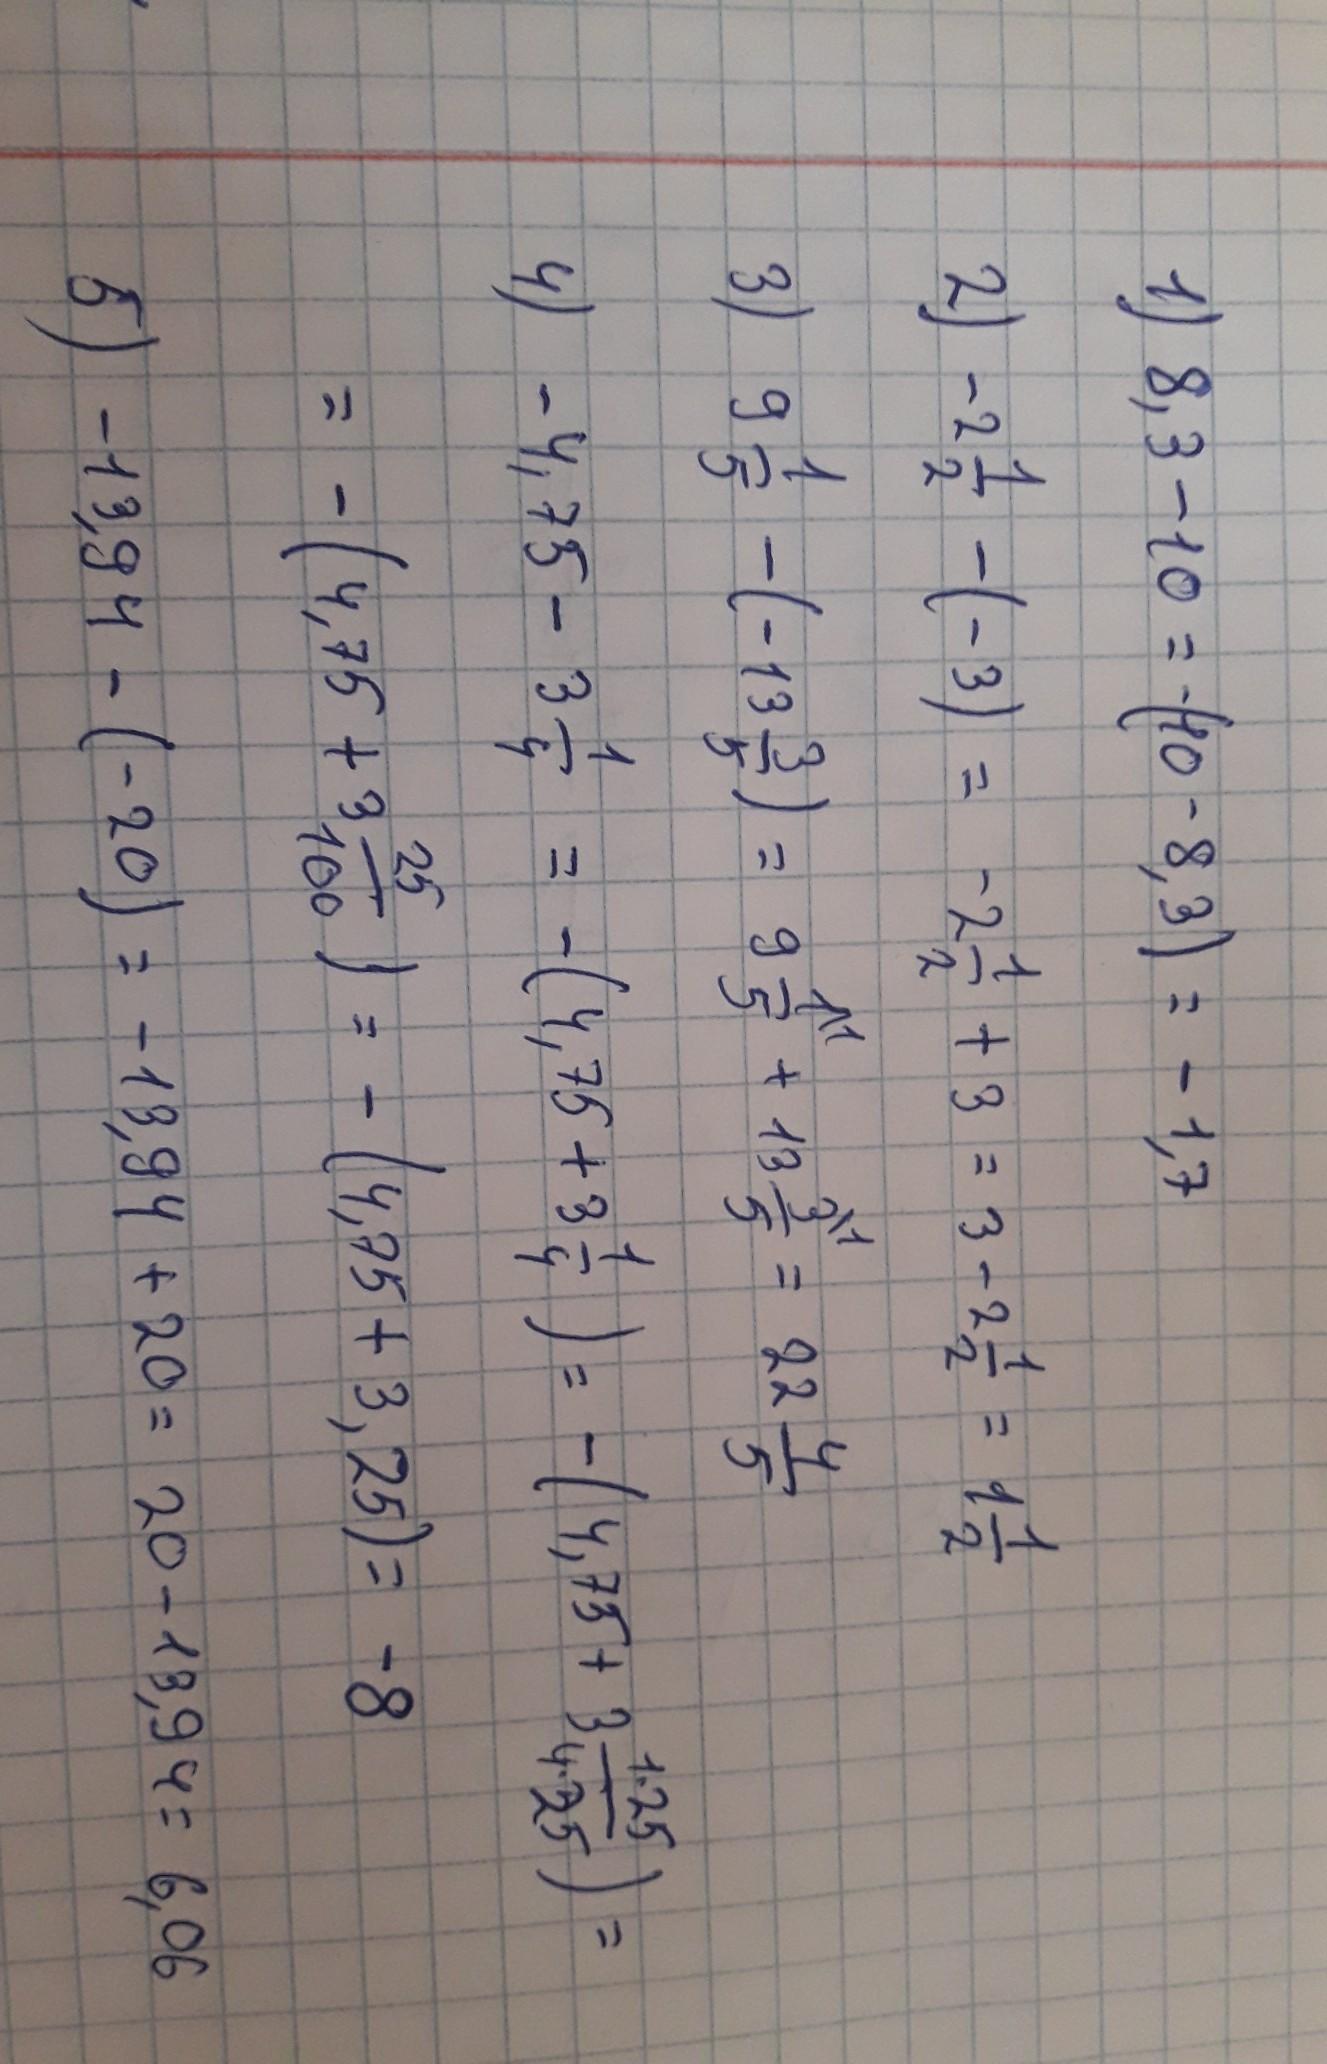 1) 8,3 - 10 = -(10 - 8,3) = - 1,7
2) -2 1/2 - (-3) = -2 1/2 + 3 = 3 - 2 1/2 = 1 1/2
3) 9 1/5 - (-13 3/5) = 9 1\1/5 + 13 3\1/5 = 22 4/5
4) -4,75 - 3 1/4 = -(4,75 + 3 1/4) = -(4,75 + 3 1·25/4·25) =
= -(4,75 + 3 25/100) = -(4,75 + 3,25) = -8
5) -13,94 - (-20) = -13,94 + 20 = 20 - 13,94 = 6,06